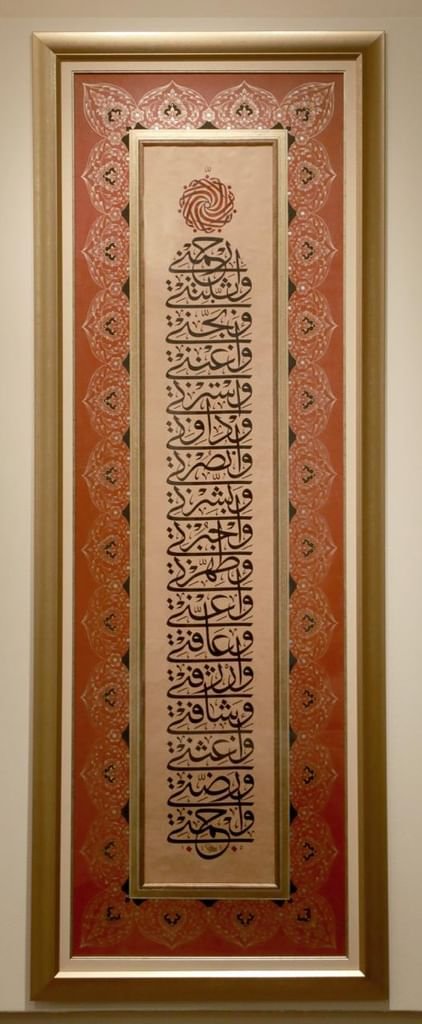 ارحمني
وثبتني
ونجني
واغنني
واسترني
وداوني
وانصرني
وبشرني
واجبرني
وطهرني
واعني
وعافني
وارزقني
وشافني
واغثني
ورضني